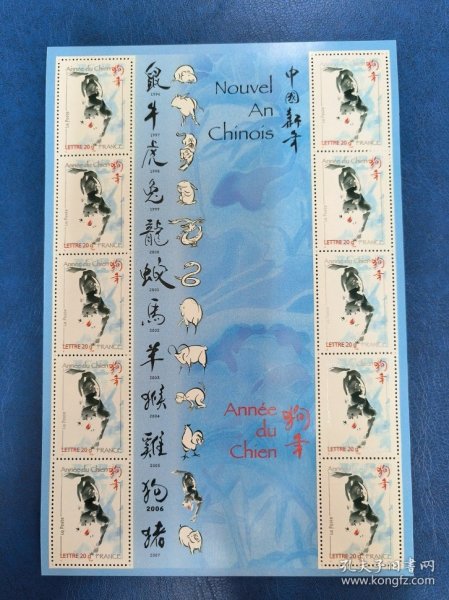 Nouvel
An
Chinois
中國新年
鼠
1996
牛
1997
虎
1998
兔
1999
龍
2000
蛇
2001
馬
2002
羊
2003
猴
2004
雞
2005
狗
2006
豬
2007
Année
du
Chien
狗年
Année du Chien
狗年
La Poste
LETTRE 20 g FRANCE
Année du Chien
狗年
La Poste
LETTRE 20 g FRANCE
Année du Chien
狗年
La Poste
LETTRE 20 g FRANCE
Année du Chien
狗年
La Poste
LETTRE 20 g FRANCE
Année du Chien
狗年
La Poste
LETTRE 20 g FRANCE
Année du Chien
狗年
La Poste
LETTRE 20 g FRANCE
Année du Chien
狗年
La Poste
LETTRE 20 g FRANCE
Année du Chien
狗年
La Poste
LETTRE 20 g FRANCE
Année du Chien
狗年
La Poste
LETTRE 20 g FRANCE
Année du Chien
狗年
La Poste
LETTRE 20 g FRANCE
孔夫子旧书网
www.kongfz.com